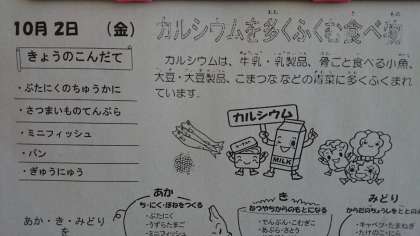 10月2日 (金)
きょうのこんだて
・ぶたにくのちゅうかに
・さつまいものてんぷら
・ミニフィッシュ
・パン
・ぎゅうにゅう
カルシウムを多くふくむ食べ物
カルシウムは、牛乳・乳製品、骨ごと食べる小魚、
大豆・大豆製品、こまつななどの青菜に多くふくまれ
ています。
カルシウム
MILK
あか・き・みどり
を
あか
ち・にく・ほねをつくる
・ぶたにく
・うずらたまご
・ミニフィッシュ
き
ねつやちからのもとになる
・でんぷん・こむぎこ
・あぶら・さとう
みどり
からだのちょうしをととの
・キャベツ・たまねぎ
・たけのこ・にら